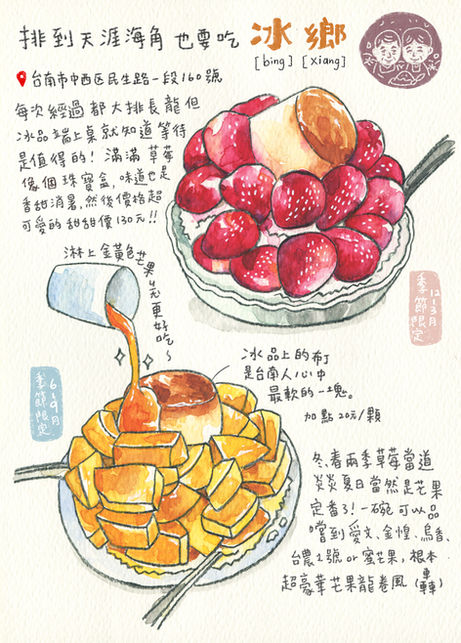 排到天涯海角也要吃 冰鄉
[bing] [xiang]
台南市中西区民生路一段160號
每次經過都大排長龍但
冰品端上桌就知道等待
是值得的!滿滿草莓
像個珠寶盒,味道也是
香甜消暑,然後價格超
可愛的甜甜價130元!!
12-3月
季節限定
淋上金黃色芒果
先更好吃~
6-9月
季節限定
冰品上的布丁
是台南人心中
最軟的一塊。
加點20元/顆
冬、春兩季草莓當道
炎炎夏日當然是芒果
定番了!一碗可以品
嚐到愛文、金煌、烏香、
台農1號or蜜芒果,根本
超豪華芒果龍卷風(轟)